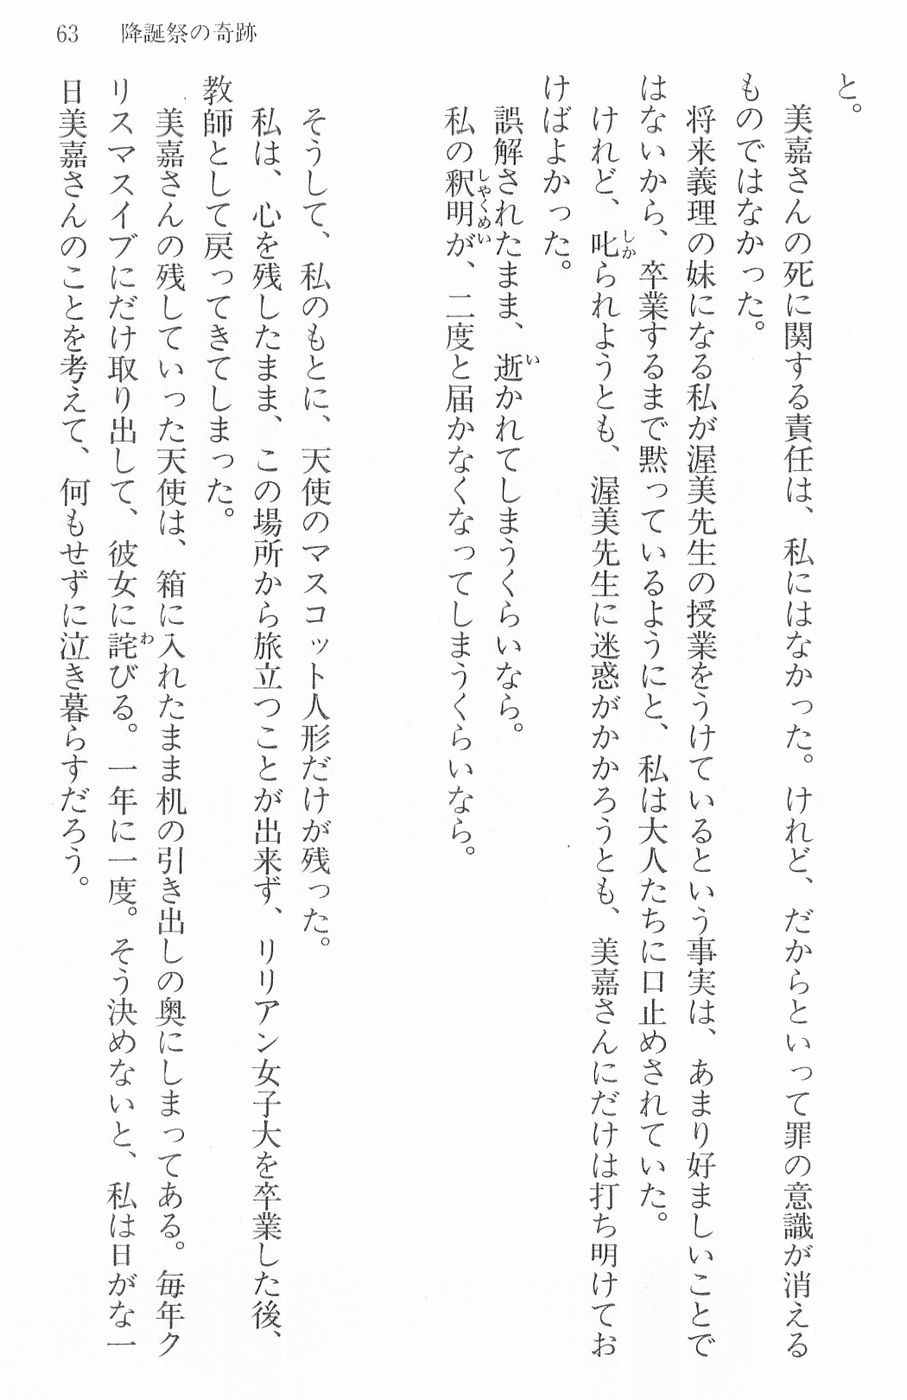 63 降誕祭の奇跡
と。
美嘉さんの死に関する責任は、私にはなかった。けれど、だからといって罪の意識が消える
ものではなかった。
将来義理の妹になる私が渥美先生の授業をうけているという事実は、あまり好ましいことで
はないから、卒業するまで黙っているようにと、私は大人たちに口止めされていた。
けれど、叱られようとも、渥美先生に迷惑がかかろうとも、美嘉さんにだけは打ち明けてお
けばよかった。
誤解されたまま、逝かれてしまうくらいなら。
私の釈明が、二度と届かなくなってしまうくらいなら。
そうして、私のもとに、天使のマスコット人形だけが残った。
私は、心を残したまま、この場所から旅立つことが出来ず、リリアン女子大を卒業した後、
教師として戻ってきてしまった。
美嘉さんの残していった天使は、箱に入れたまま机の引き出しの奥にしまってある。毎年ク
リスマスイブにだけ取り出して、彼女に詫びる。一年に一度。そう決めないと、私は日がな一
日美嘉さんのことを考えて、何もせずに泣き暮らすだろう。